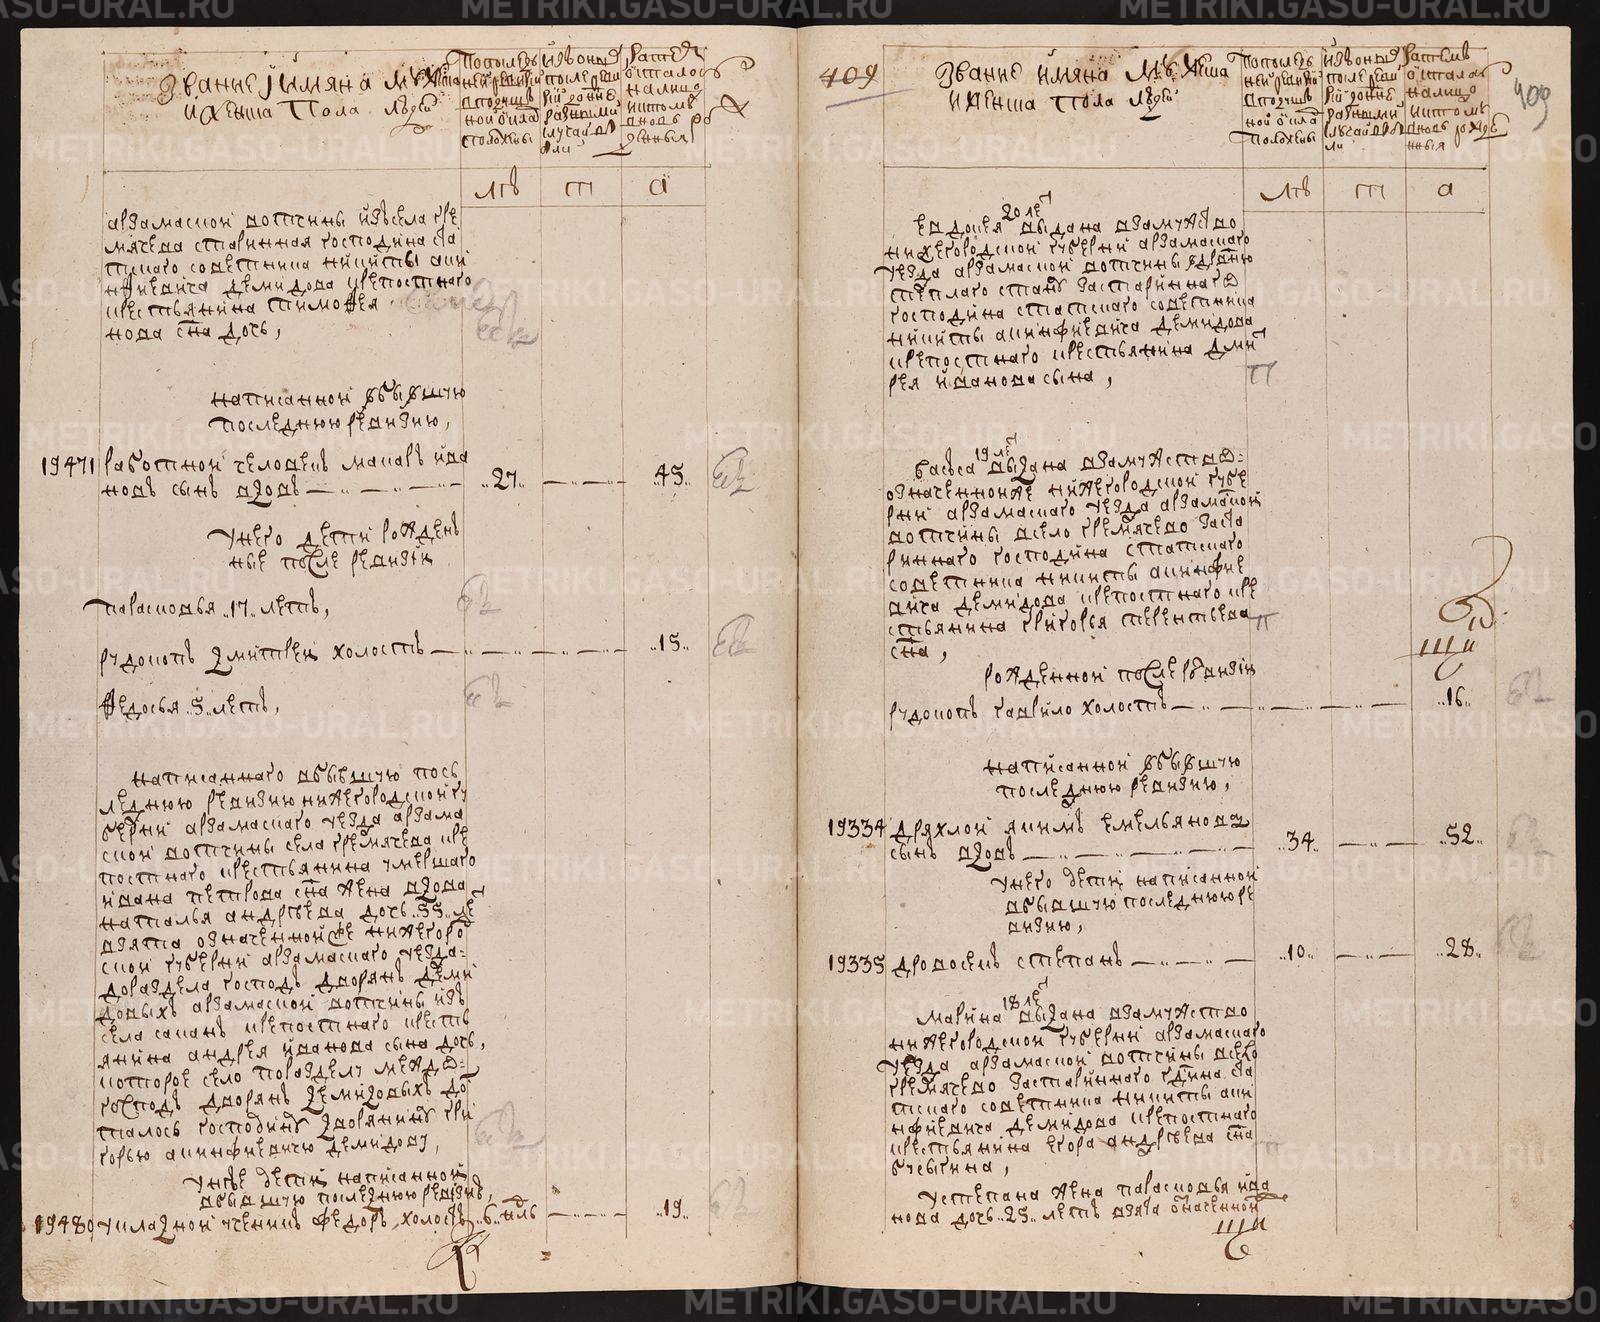 звание и имяна мужеска
и женска пола людей
По последней ревизии в подушной оклад положены
из оных после ревизии разными случаи
затем осталось налицо и потом вновь рожденныя
лѣ
т
а
арзамаской вотчины из села гре
мячева старинная господина ста
тскаго советника никиты акин
фиевича демидова крепостнаго
крестьянина тимофея
нова сна дочь,
написанной в бывшую
последнюю ревизию,
19471 работной человекъ макаръ ива
новъ сынъ вдовъ ..27.. ..45..
у него дети рожден
ные после ревизии
парасковья ..17.. летъ,
рудокопъ дмитрей холостъ ..15..
федосья ..5.. летъ,
написаннаго в бывшую пос
леднюю ревизию нижегородской гу
бернии арзамаскаго уезда арзама
ской вотчины села гремячева кре
постнаго крестьянина умершаго
ивана петрова сна жена вдова
наталья андреева дочь ..55.. ле
взята означенной же нижегоро
ской губернии арзамаскаго уезда
до раздела господъ дворянъ деми
довыхъ арзамаской вотчины изъ
села саканъ крепостнаго кресть
янина андрея иванова сына дочь,
которое село по разделу между
господъ дворянъ демидовыхъ до
сталось господину дворянину гри
горью акинфиевичу демидову,
у нее дети написанной
в бывшую последнюю ревизию,
19480 укладной ученикъ федоръ холостъ ..6.. нль ..19..
409
звание имяна мужеска
и женска пола людей
По последней ревизии в подушной оклад положены
из оных после ревизии разными случаи
затем осталось налицо и потом вновь рожденныя
409
лѣ
т
а
20 ле
евдокея выдана взамужство
нижегородской губернии арзамаскаго
уезда арзамаской вотчины
господина статскаго советника
никиты акинфиевича демидова
крепостнаго крестьянина
рея иванова сына,
19 ле
васса выдана взамужство
означенной же нижегородской губе
рнии арзамаскаго уезда арзамаской
вотчины в село гремячево за ста
риннаго господина статскаго
советника никиты акинфие
вича демидова крепостнаго кре
стьянина григорья терентьева
сна,
рожденной после ревизии
рудокопъ гаврило холостъ ..16..
написанной в бывшую
последнюю ревизию,
19334 дряхлой якимъ емельяновъ
сынъ вдовъ ..34.. ..52..
у него дети написанной
в бывшую последнюю ре
визию,
19335 дровосекъ степанъ ..10.. ..28..
18 ле
марина выдана взамужство
нижегородской губернии арзамаскаго
уезда арзамаской вотчины в село
гремячево за стариннаго гдина ста
тскаго советника никиты акин
фиевича демидова крепостнаго
крестьянина егора андреева сна
бусыгина,
у степана жена парасковья ива
нова дочь ..25.. летъ взята означенной
METRIKI.GASO-URAL.RU